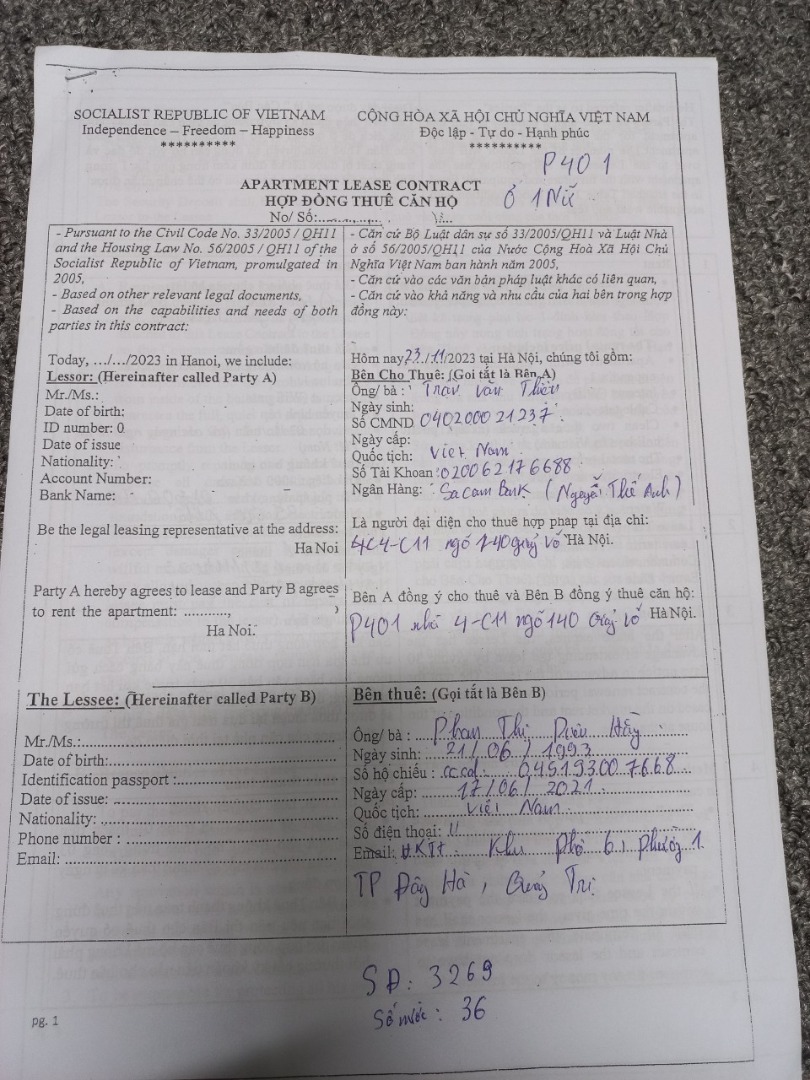 SOCIALIST REPUBLIC OF VIETNAM
Independence – Freedom – Happiness
**********
CỘNG HÒA XÃ HỘI CHỦ NGHĨA VIỆT NAM
Độc lập - Tự do - Hạnh phúc
**********
P401
Ở 1 Nữ
APARTMENT LEASE CONTRACT
HỢP ĐỒNG THUÊ CĂN HỘ
No/ Số:
- Pursuant to the Civil Code No. 33/2005 / QH11
and the Housing Law No. 56/2005 / QH11 of the
Socialist Republic of Vietnam, promulgated in
2005,
- Based on other relevant legal documents,
- Based on the capabilities and needs of both
parties in this contract:
Today, .../.../2023 in Hanoi, we include:
Lessor: (Hereinafter called Party A)
Mr./Ms.:
Date of birth:
ID number: 0
Date of issue
Nationality:
Account Number:
Bank Name:
Be the legal leasing representative at the address:
Ha Noi
Party A hereby agrees to lease and Party B agrees
to rent the apartment: ...........,
Ha Noi.
- Căn cứ Bộ Luật dân sự số 33/2005/QH11 và Luật Nhà
ở số 56/2005/QH11 của Nước Cộng Hoà Xã Hội Chủ
Nghĩa Việt Nam ban hành năm 2005,
- Căn cứ vào các văn bản pháp luật khác có liên quan,
- Căn cứ vào khả năng và nhu cầu của hai bên trong hợp
đồng này:
Hôm nay 23/11/2023 tại Hà Nội, chúng tôi gồm:
Bên Cho Thuê: (Gọi tắt là Bên A)
Ông/ bà : Tran Văn
Ngày sinh:
Số CMND 040200021237
Ngày cấp:
Quốc tịch: Viet Nam
Số Tài Khoan : 020062176688
Ngân Hàng: Sacombank ( Nguyễn Thế Anh )
Là người đại diện cho thuê hợp pháp tại địa chỉ:
4C4-C11 ngõ 140 giảng võ Hà Nội.
Bên A đồng ý cho thuê và Bên B đồng ý thuê căn hộ:
P401 nhà 4-C11 ngõ 140 Giảng võ Hà Nội.
The Lessee: (Hereinafter called Party B)
Mr./Ms.:
Date of birth:
Identification passport :
Date of issue:
Nationality:
Phone number :
Email:
Bên thuê: (Gọi tắt là Bên B)
Ông/ bà : Phan Thị Diệu Hằng
Ngày sinh: 21/06/1993
Số hộ chiếu : cccd. 045193007668
Ngày cấp: 17/06/2021
Quốc tịch: Việt Nam
Số điện thoại:
Email: HKTT: Khu Phố 6, Phường 1
TP Đông Hà, Quảng Trị
SĐ: 3269
Số nước: 36
pg. 1